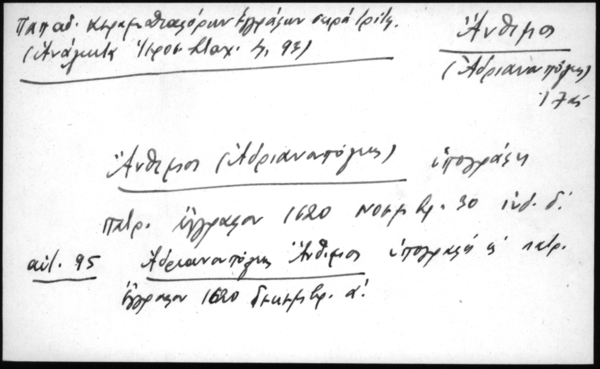 Παπαδ. Κεραμ. Πατμ. όρων Εγγράφων σειρά τρίτη.
(Ανάλεκτα Ιεροσ. Σταχ. Δ, 95)
Άνθιμος
(Αδριανουπόλεως)
17ος
Άνθιμος (Αδριανουπόλεως) υπογράφει
πατρ. έγγραφον 1620 νοεμβρ. 30 ινδ. δ΄.
σελ. 95 Αδριανουπόλεως Άνθιμος υπογράφει εις πατρ.
έγγραφον 1620 δεκεμβρ. α΄.